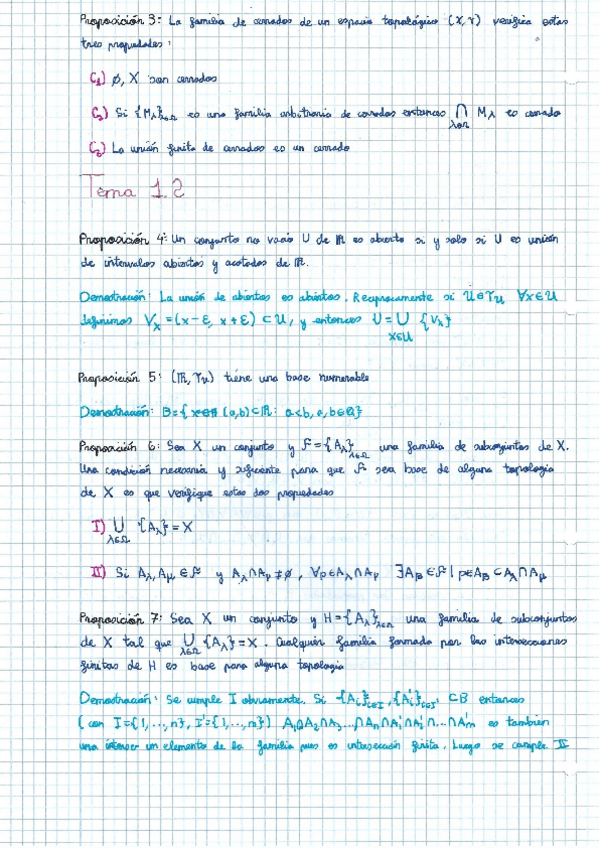 Proposición 3: La familia de cerrados de un espacio topológico (X,τ) verifica estas
tres propiedades:
C₁) ∅, X son cerrados
C₂) Si {Mλ}λ∈Ω es una familia arbitraria de cerrados entonces ⋂λ∈Ω Mλ es cerrado
C₃) La unión finita de cerrados es un cerrado
Tema 1.2
Proposición 4: Un conjunto no vacío U de ℝ es abierto si y solo si U es unión
de intervalos abiertos y acotados de ℝ.
Demostración: La unión de abiertos es abiertos. Recíprocamente si U∈τu, ∀x∈U
definimos Vx=(x-ε, x+ε)⊂U, y entonces U=⋃x∈U {Vx}
Proposición 5: (ℝ,τu) tiene una base numerable
Demostración: B={(a,b)⊂ℝ: a<b, a,b∈ℚ}
Proposición 6: Sea X un conjunto y F={Aλ}λ∈Ω una familia de subconjuntos de X.
Una condición necesaria y suficiente para que F sea base de alguna topología
de X es que verifique estas dos propiedades
I) ⋃λ∈Ω {Aλ}=X
II) Si Aλ, Aμ∈F y Aλ∩Aμ≠∅, ∀p∈Aλ∩Aμ ∃AB∈F | p∈AB⊂Aλ∩Aμ
Proposición 7: Sea X un conjunto y H={Aλ}λ∈Ω una familia de subconjuntos
de X tal que ⋃λ∈Ω {Aλ}=X. Cualquier familia formada por las intersecciones
finitas de H es base para alguna topología
Demostración: Se cumple I obviamente. Si {Ai}i∈I, {A'i}i∈I' ⊂B entonces
(con I={1,...,n}, I'={1,...,n}) A₁∩A₂∩A₃...∩An∩A'₁∩A'₁∩...∩A'm es también
un elemento de la familia pues es intersección finita. Luego se cumple II